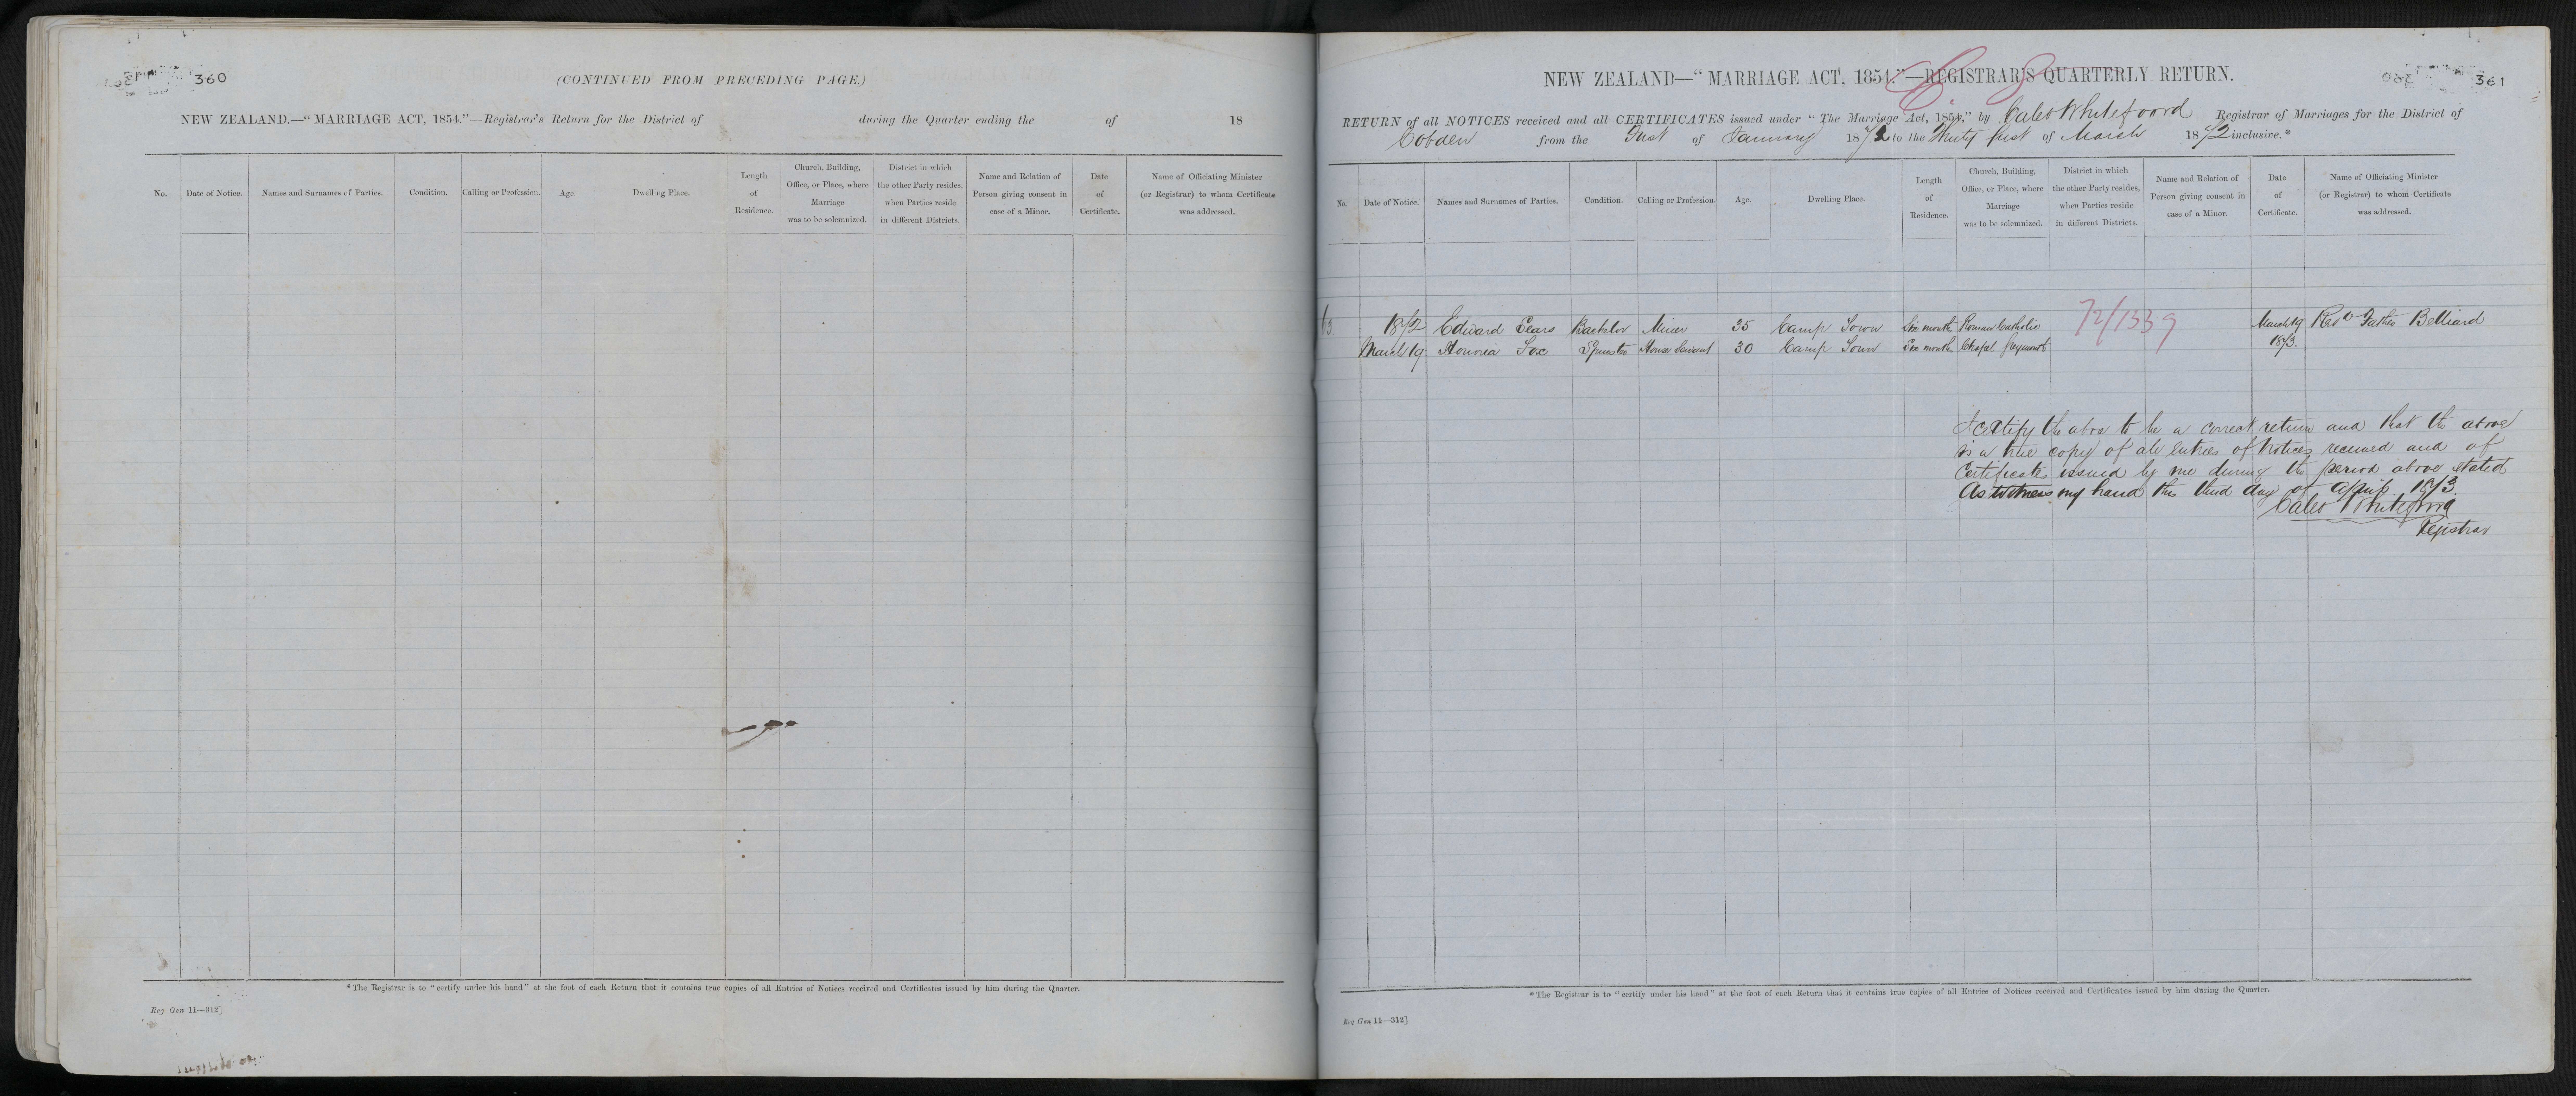 360
(CONTINUED FROM PRECEDING PAGE.)
NEW ZEALAND.—“MARRIAGE ACT, 1854.”—Registrar's Return for the District of during the Quarter ending the of 18
No. Date of Notice. Names and Surnames of Parties. Condition. Calling or Profession. Age. Dwelling Place. Length of Residence. Church, Building, Office, or Place, where Marriage was to be solemnized. District in which the other Party resides, when Parties reside in different Districts. Name and Relation of Person giving consent in case of a Minor. Date of Certificate. Name of Officiating Minister (or Registrar) to whom Certificate was addressed.
*The Registrar is to “certify under his hand” at the foot of each Return that it contains true copies of all Entries of Notices received and Certificates issued by him during the Quarter.
Reg Gen 11—312]
361
NEW ZEALAND—“MARRIAGE ACT, 1854.”—REGISTRAR'S QUARTERLY RETURN.
RETURN of all NOTICES received and all CERTIFICATES issued under “The Marriage Act, 1854,” by Caleb Whitefoord Registrar of Marriages for the District of
Cobden from the First of January 1872 to the Thirty first of March 1872 inclusive.*
No. Date of Notice. Names and Surnames of Parties. Condition. Calling or Profession. Age. Dwelling Place. Length of Residence. Church, Building, Office, or Place, where Marriage was to be solemnized. District in which the other Party resides, when Parties reside in different Districts. Name and Relation of Person giving consent in case of a Minor. Date of Certificate. Name of Officiating Minister (or Registrar) to whom Certificate was addressed.
1872 Edward Sears Bachelor Miner 35 Camp Town Six month Roman Catholic 72/1339 March 19 Revd Father Belliard
March 19 Honoria Fox Spinster House Servant 30 Camp Town Six month Chapel Greymouth 1873.
I certify the above to be a correct return and that the above
is a true copy of all entries of Notices received and of
Certificates issued by me during the period above stated
As witness my hand this third day of April 1873.
Caleb Whitefoord
Registrar
*The Registrar is to “certify under his hand” at the foot of each Return that it contains true copies of all Entries of Notices received and Certificates issued by him during the Quarter.
Reg Gen 11—312]